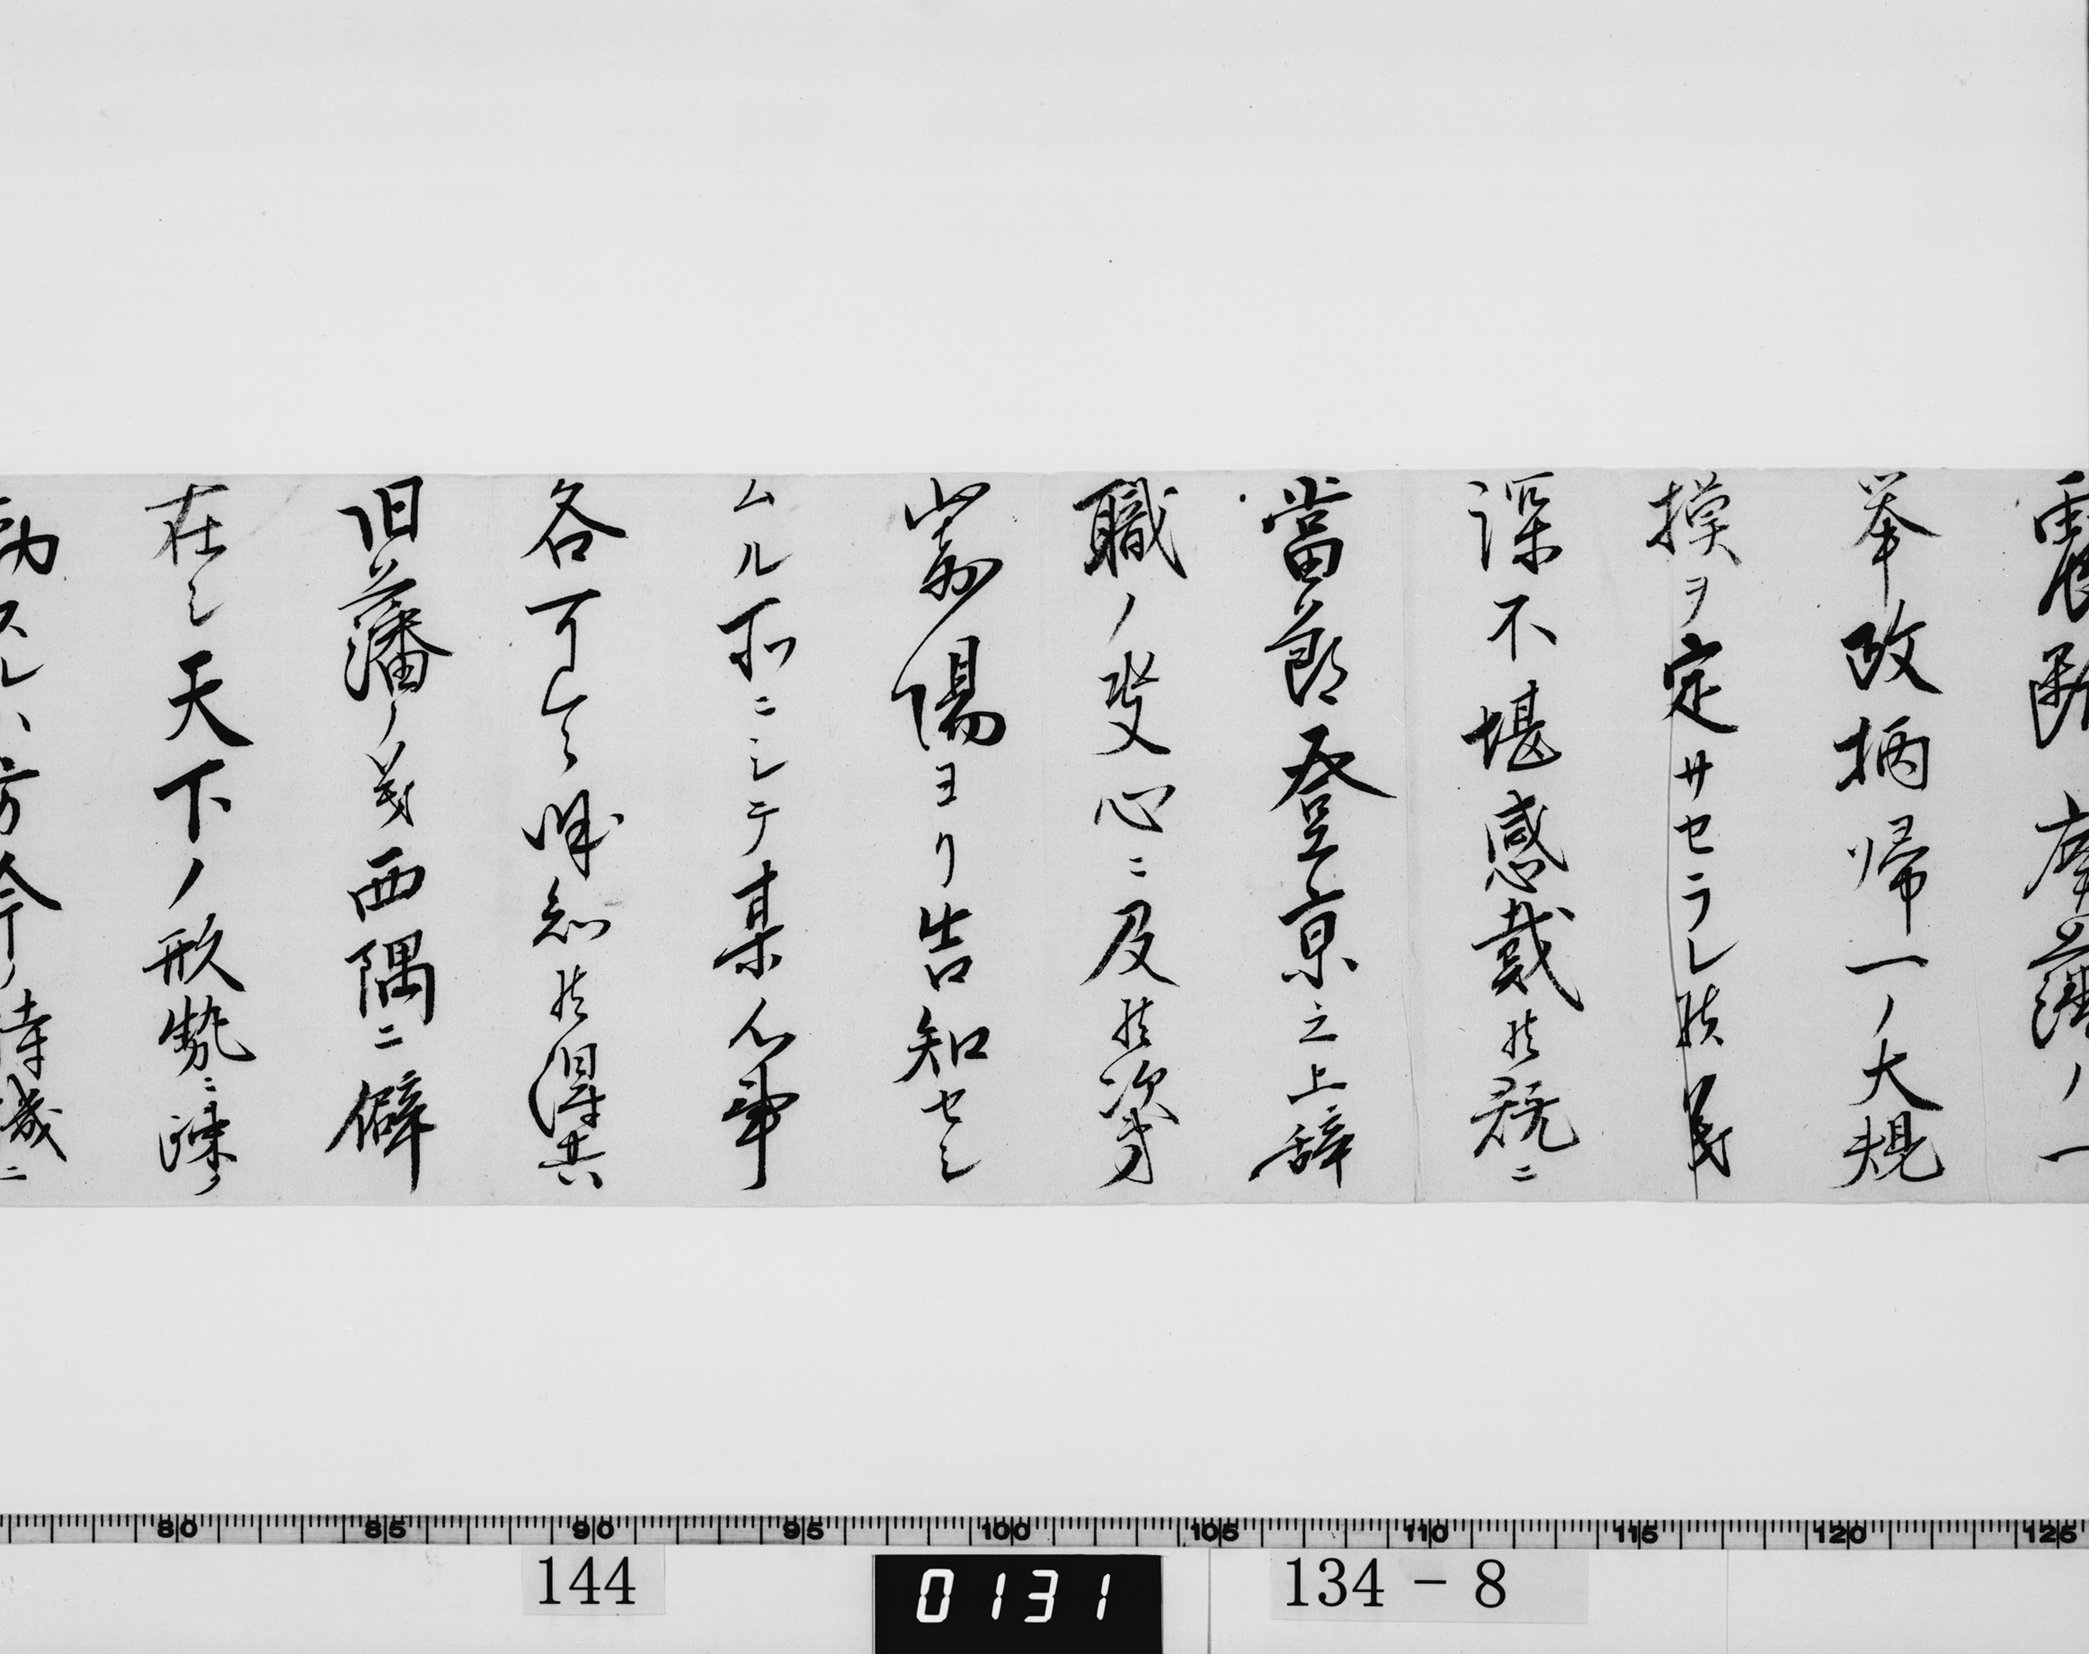 震断廃藩ノ一
挙政柄帰一ノ大規
摸ヲ定サセラレ候義
深不堪感戴候既ニ
當節登京之上辞
職ノ決心ニ及候次第
嵩陽ヨリ告知セシ
ムル所ニシテ某心事
各可令諒知候得共
旧藩ノ義西隅ニ僻
在シ天下ノ形勢ニ疎ク
動スレハ方今ノ時機ニ
80 85 90 95 100 105 110 115 120 125
144
0131
134-8